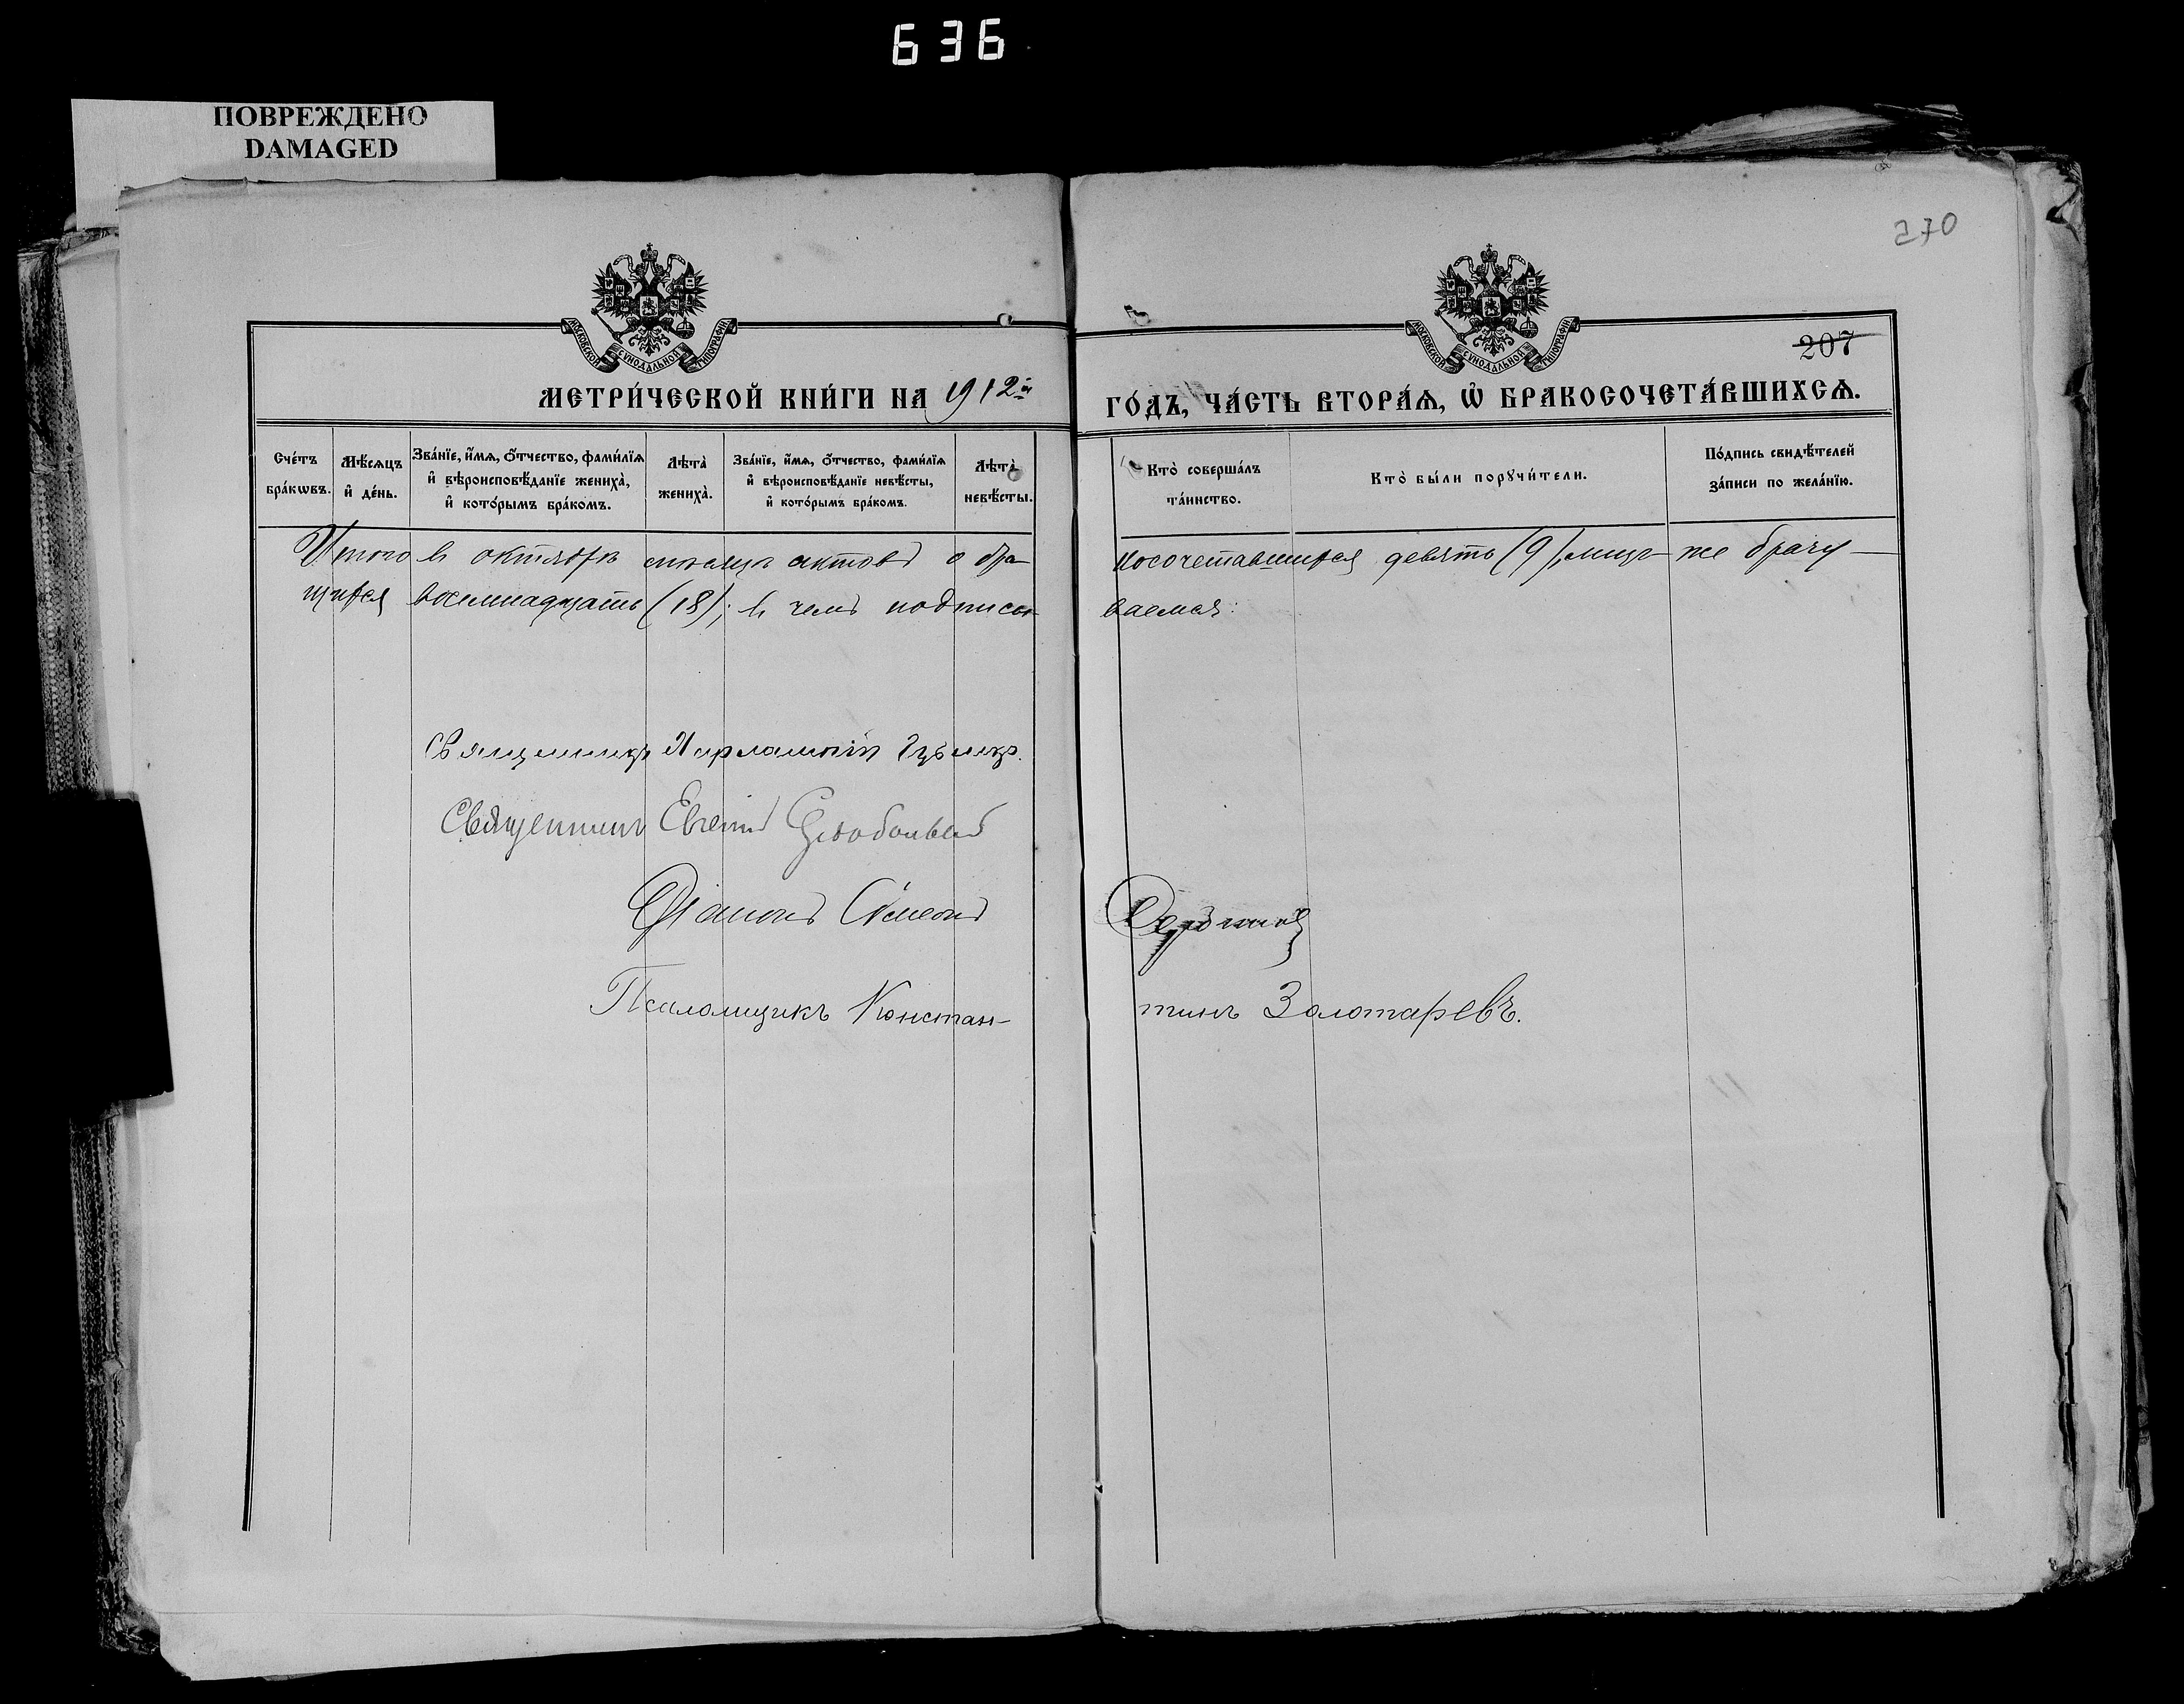 636
ПОВРЕЖДЕНО
DAMAGED
270
207
МОСКОВСКОЙ СѴНОДАЛЬНОЙ ТИПОГРАФІИ
МОСКОВСКОЙ СѴНОДАЛЬНОЙ ТИПОГРАФІИ
МЕТРИ́ЧЕСКОЙ КНИ́ГИ НА 1912й ГО́ДЪ, ЧА́СТЬ ВТОРА́Ѧ, Ѽ БРАКОСОЧЕТА́ВШИХСѦ.
Сче́тъ бра́кѡвъ.
Мѣ́сѧцъ и҆ де́нь.
Зва́нїе, и҆́мѧ, ѻ҆́тчество, фами́лїѧ и҆ вѣроисповѣ́данїе жениха̀, и҆ кото́рымъ бра́комъ.
Лѣта̀ жениха̀.
Зва́нїе, и҆́мѧ, ѻ҆́тчество, фами́лїѧ и҆ вѣроисповѣ́данїе невѣ́сты, и҆ кото́рымъ бра́комъ.
Лѣта̀ невѣ́сты.
Кто̀ соверша́лъ та́инство.
Кто̀ бы́ли порꙋчи́тели.
По́дпись свидѣ́телей за́писи по жела́нїю.
Итого въ октябрѣ мѣсяцѣ актовъ о бра-косочетавшихся девять (9), лицъ же брачу-
щихся восемнадцать (18); въ чемъ подписы-ваемся:
Священникъ Харлампій
Священникъ Евгеній
Діаконъ Сѵмеонъ
Псаломщикъ Констан-тинъ Золотаревъ.